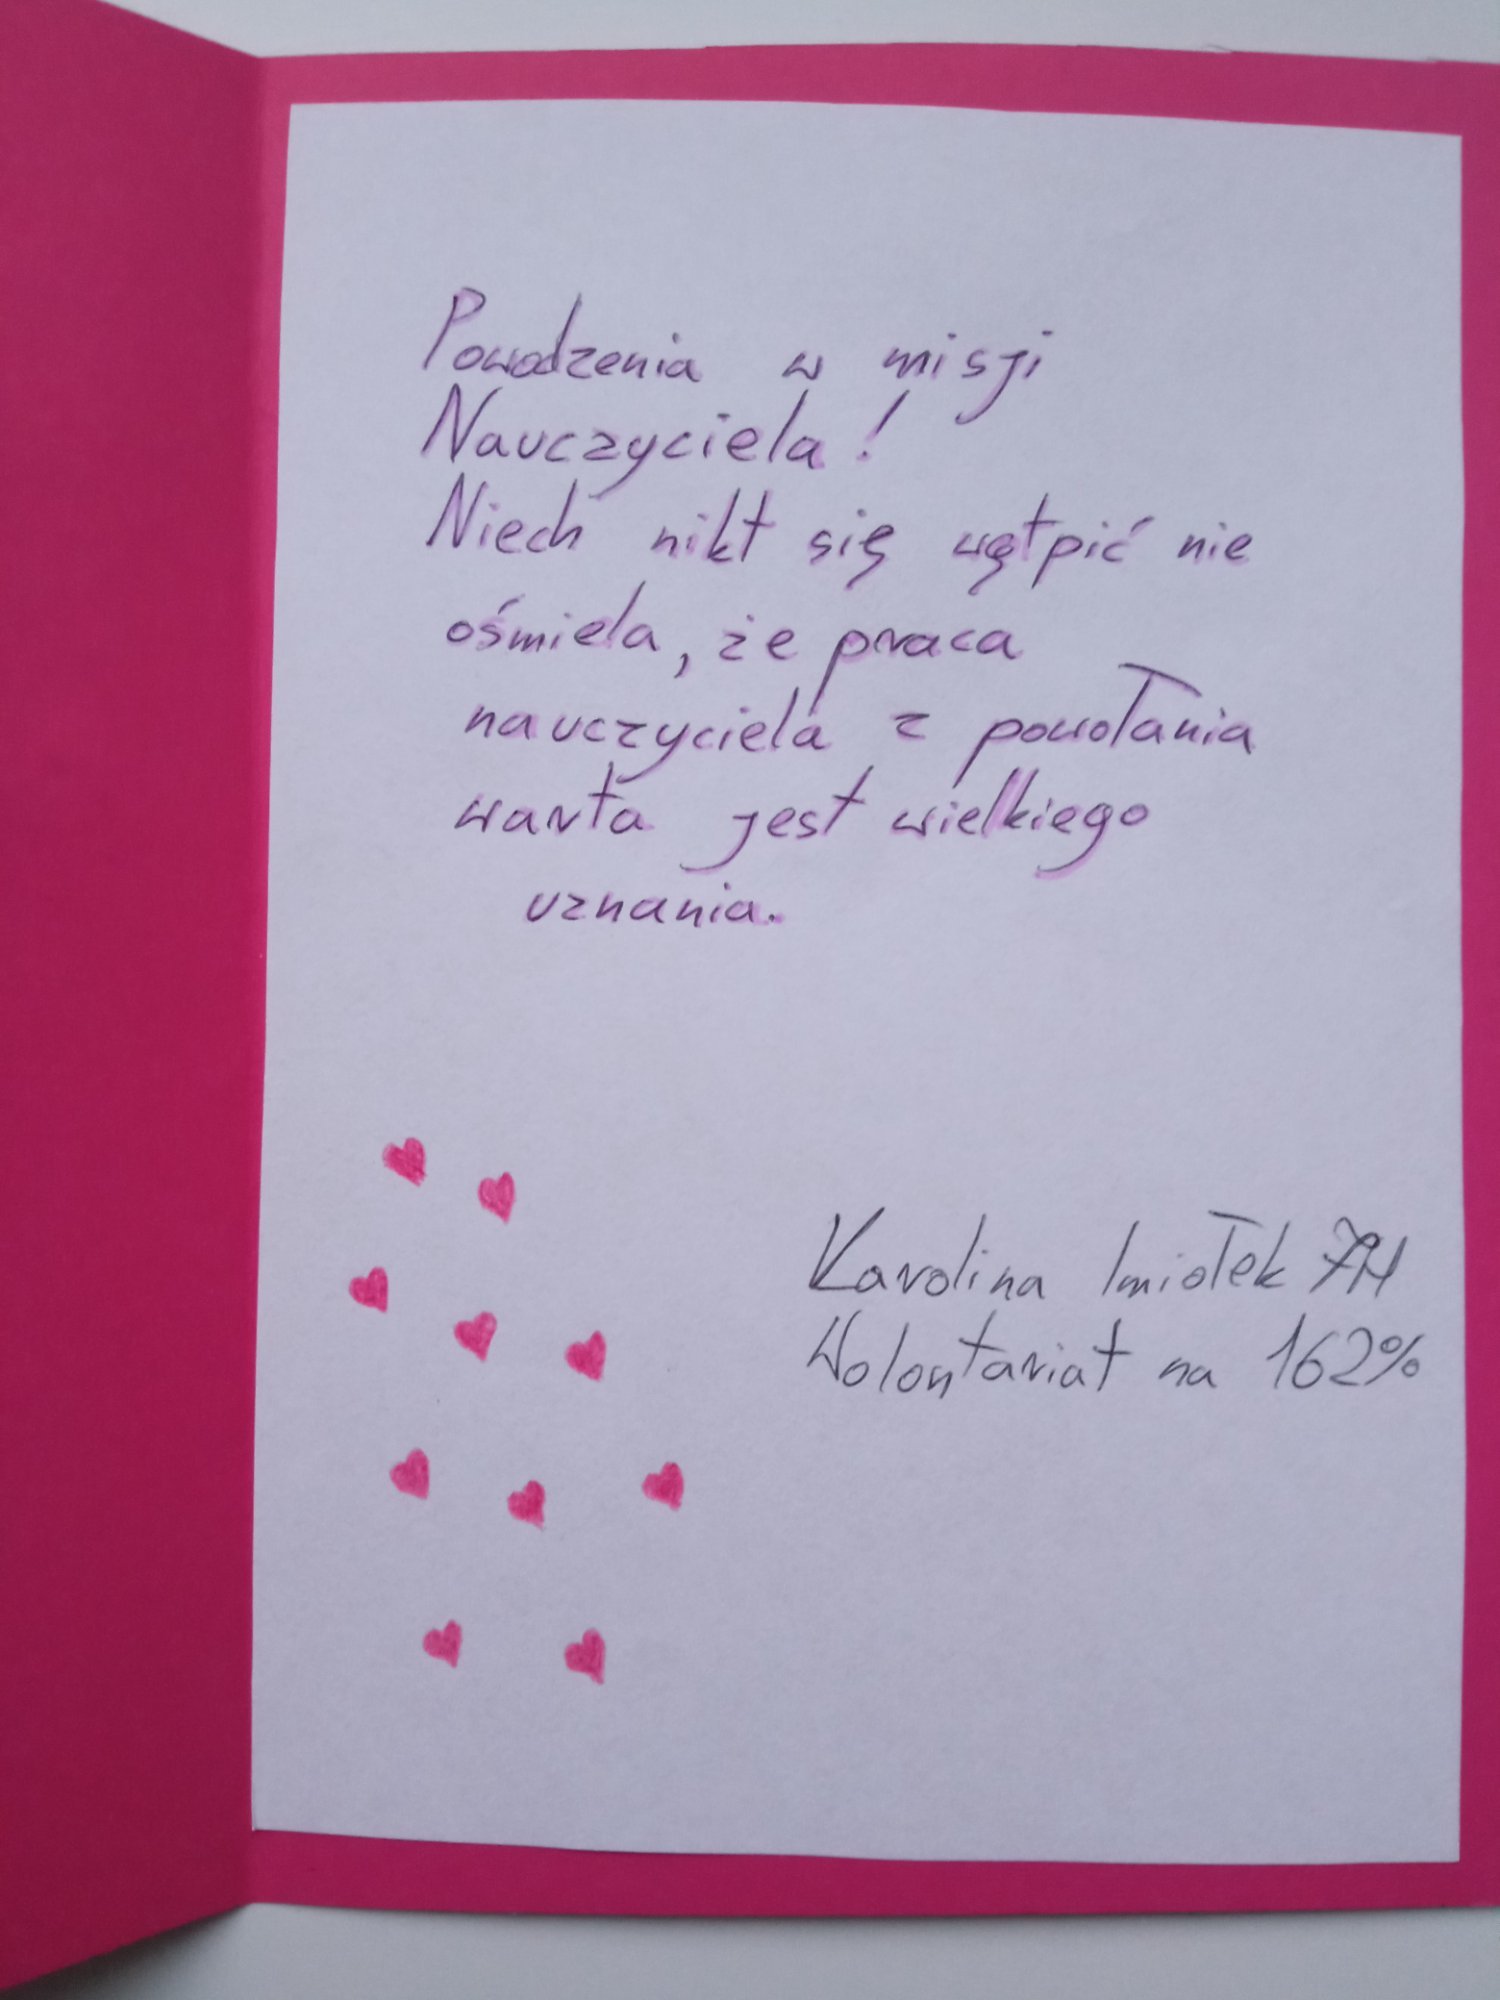 Powodzenia w misji
Nauczyciela!
Niech nikt się wątpić nie
ośmiela, że praca
nauczyciela z powołania
warta jest wielkiego
uznania.
Karolina Imiołek 7H
Wolontariat na 162%